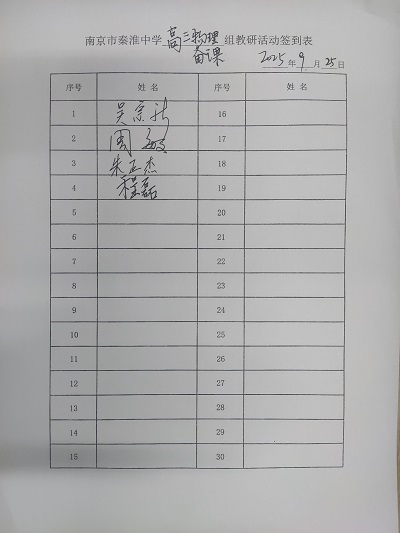 南京市秦淮中学 高三物理 组教研活动签到表
备课
2025 年 9 月 25 日
序号 姓名 序号 姓名
1 吴宗新 16
2 周敏 17
3 朱正杰 18
4 程磊 19
5 20
6 21
7 22
8 23
9 24
10 25
11 26
12 27
13 28
14 29
15 30